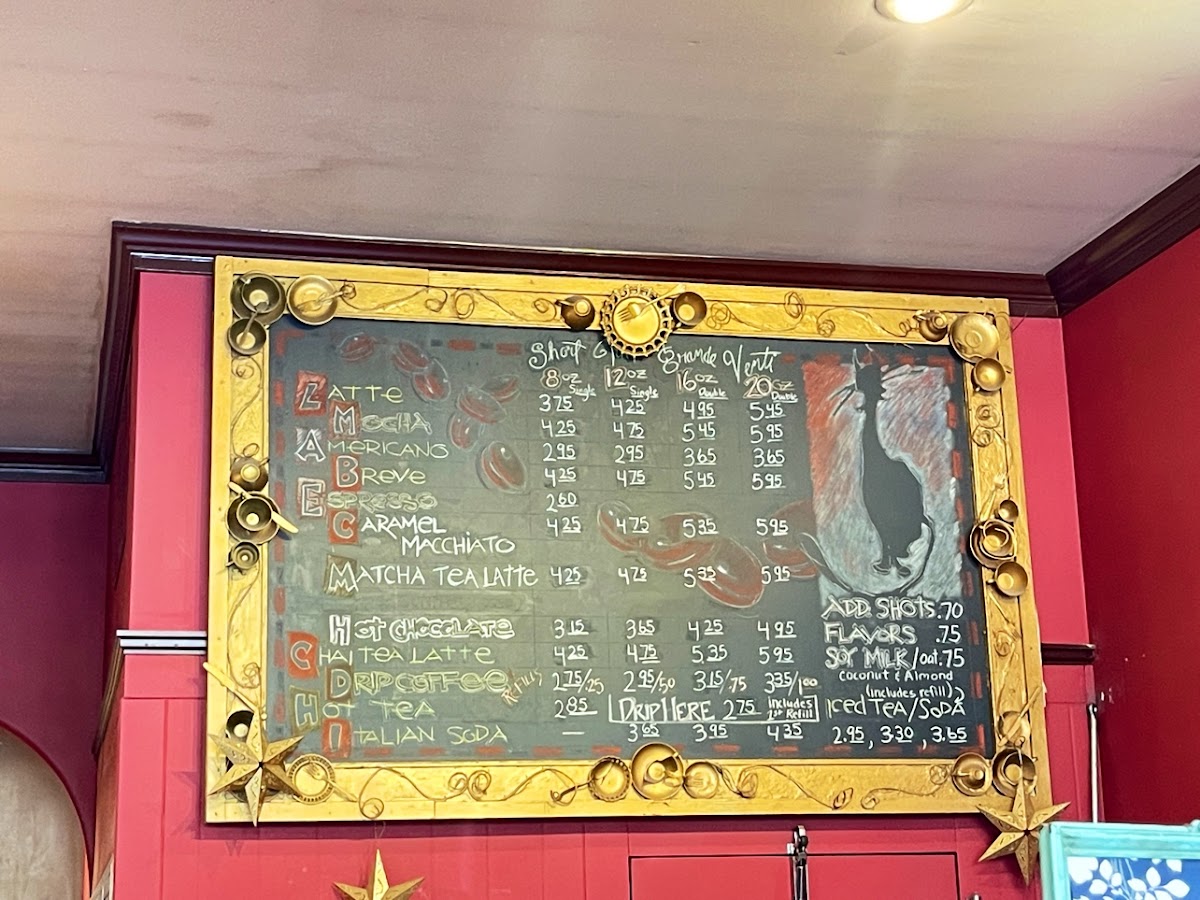 Short Grande Venti
8oz Single 12oz Single 16oz Double 20oz Double
LATTE 3.75 4.25 4.95 5.45
MOCHA 4.25 4.75 5.45 5.95
AMERICANO 2.95 2.95 3.65 3.65
BREVE 4.25 4.75 5.45 5.95
ESPRESSO 2.60
CARAMEL 4.25 4.75 5.35 5.95
MACCHIATO
MATCHA TEA LATTE 4.25 4.75 5.35 5.95
HOT CHOCOLATE 3.15 3.65 4.25 4.95
CHAI TEA LATTE 4.25 4.75 5.35 5.95
DRIP COFFEE Refills 2.75/.25 2.95/.50 3.15/.75 3.35/1.00
HOT TEA 2.85 DRIP HERE 2.75 includes 1st Refill
ITALIAN SODA — 3.65 3.95 4.35
ADD SHOTS .70
FLAVORS .75
SOY MILK/oat .75
coconut & Almond
(includes refill)
ICED TEA/SODA
2.95, 3.30, 3.65